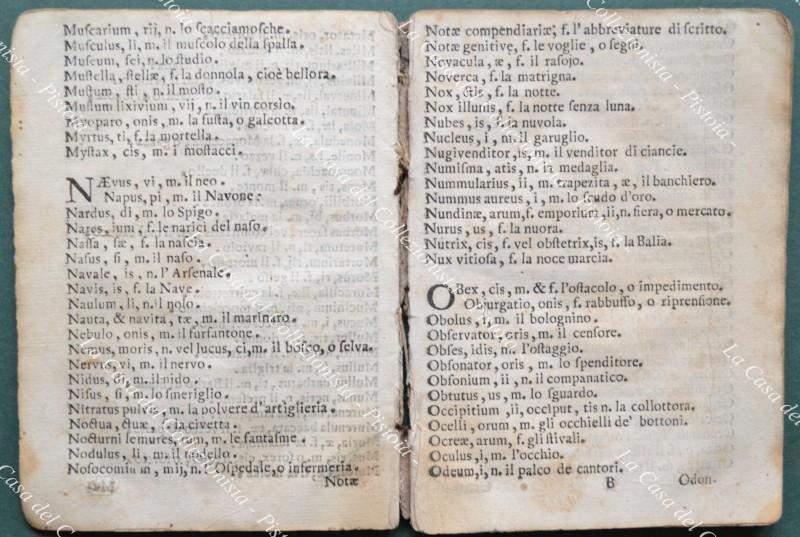 Muscarium, rij, n. lo scacciamosche.
Musculus, li, m. il muscolo della spalla.
Museum, sei, n. lo studio.
Mustella, stellæ, f. la donnola, cioè bellora.
Mustum, sti, n. il mosto.
Mustum lixivium, vij, n. il vin corsio.
Myoparo, onis, m. la fusta, o galeotta.
Myrtus, ti, f. la mortella.
Mystax, cis, m. i mostacci.
NÆvus, vi, m. il neo.
Napus, pi, m. il Navone.
Nardus, di, m. lo Spigo.
Nares, ium, f. le narici del naso.
Nassa, sæ, f. la nassa.
Nasus, si, m. il naso.
Navale, is, n. l'Arsenale.
Navis, is, f. la Nave.
Naulum, li, n. il nolo.
Nauta, & navita, tæ, m. il marinaro.
Nebulo, onis, m. il furfantone.
Nemus, moris, n. vel lucus, ci, m. il bosco, o selva.
Nervus, vi, m. il nervo.
Nidus, di, m. il nido.
Nisus, si, m. lo smeriglio.
Nitratus pulvis, m. la polvere d'artiglieria.
Noctua, ctuæ, f. la civetta.
Nocturni lemures, rum, m. le fantasme.
Nodulus, li, m. il nodello.
Nosocomium, mij, n. l'Ospedale, o infermeria.
Notæ
Notæ compendiariæ, f. l'abbreviature di scritto.
Notæ genitivę, f. le voglie, o segni
Novacula, æ, f. il rasojo.
Noverca, f. la matrigna.
Nox, ctis, f. la notte.
Nox illunis, f. la notte senza luna.
Nubes, is, f. la nuvola.
Nucleus, i, m. il garuglio.
Nugivenditor, is, m. il venditor di ciancie.
Numisma, atis, n. la medaglia.
Nummularius, ii, m. trapezita, æ, il banchiero.
Nummus aureus, i, m. lo scudo d'oro.
Nundinæ, arum, f. emporium, ii, n. fiera, o mercato.
Nurus, us, f. la nuora.
Nutrix, cis, f. vel obstetrix, is, f. la Balia.
Nux vitiosa, f. la noce marcia.
OBex, cis, m. & f. l'ostacolo, o impedimento.
Objurgatio, onis, f. rabbuffo, o riprensione.
Obolus, i, m. il bolognino.
Observator, oris, m. il censore.
Obses, idis, m. l'ostaggio.
Obsonator, oris, m. lo spenditore.
Obsonium, ii, n. il companatico.
Obtutus, us, m. lo sguardo.
Occipitium, ii, occiput, tis n. la collottora.
Ocelli, orum, m. gli occhielli de' bottoni.
Ocreæ, arum, f. gli stivali.
Oculus, i, m. l'occhio.
Odeum, i, n. il palco de cantori.
B Odon-
La Casa del Collezionista - Pistoia -